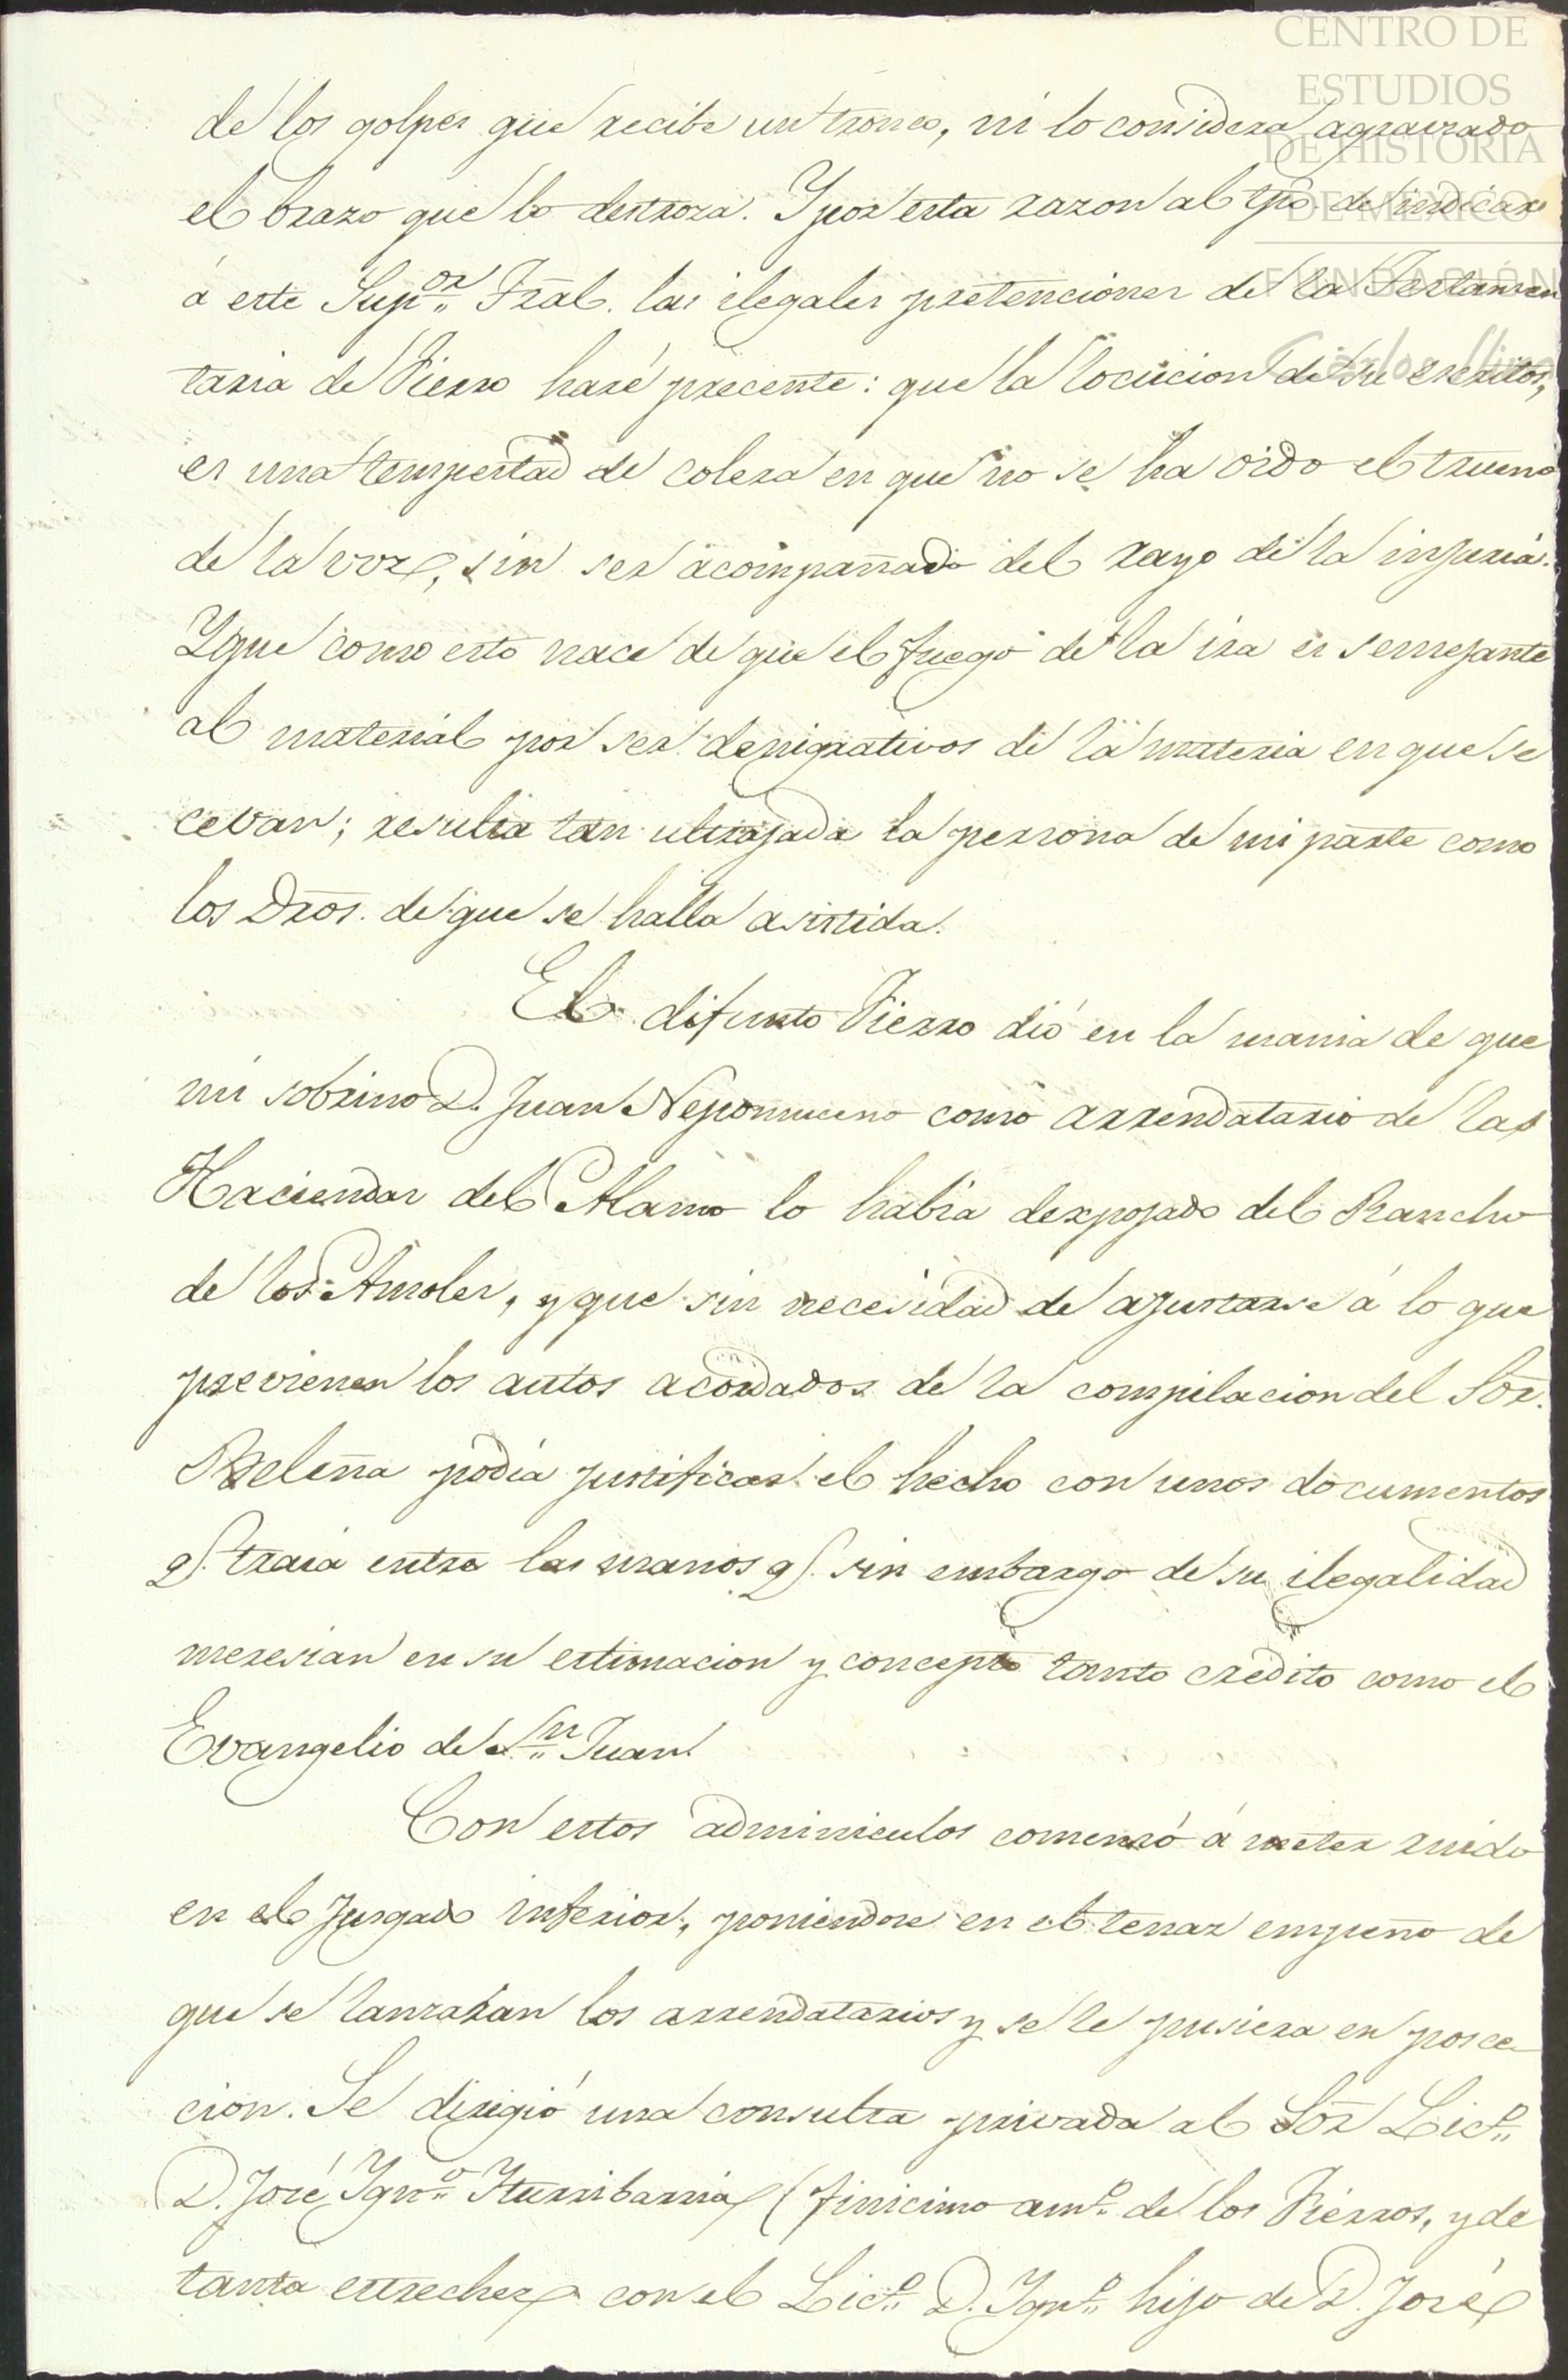 CENTRO DE
ESTUDIOS
DE HISTORIA
DE MÉXICO
FUNDACIÓN
Carlos Slim
de los golpes que recibe un tronco, ni lo considera agraviado
el brazo que lo destroza. Y por esta razon al tpo. de indicar
á este Sup.or Tral. las ilegales pretenciones de la Testamen
taria de Fierro haré precente: que la locucion de su escritos,
es una tempestad de colera en que no se ha oido el trueno
de la voz, sin ser acompañado del rayo de la injuria.
Y que como esto nace de que el fuego de la ira es semejante
al material por ser denigrativos de la materia en que se
cevan; resulta tan ultrajada la persona de mi parte como
los Dros. de que se halla asistida.
El difunto Fierro dió en la mania de que
mi sobrino D. Juan Nepomuceno como arrendatario de las
Haciendas del Alamo lo habia despojado del Rancho
de los Amoles, y que sin necesidad de ajustarse á lo que
previenen los autos acordados de la compilacion del Sor.
Beleña podia justificar el hecho con unos documentos
q. traia entre las manos q. sin embargo de su ilegalidad
meresian en su estimacion y concepto tanto credito como el
Evangelio de Sn. Juan.
Con estos adminiculos comenzó á meter ruido
en el Jusgado inferior, poniendose en el tenaz empeño de
que se lanzaran los arrendatarios y se le pusiera en posce-
cion. Se dirigió una consulta privada al Sor Lic.o
D. José Ygn.o Yturribarria (finicimo am.o de los Fierros, y de
tanta estreches con el Lic.o D. Ygn.o hijo de D. José